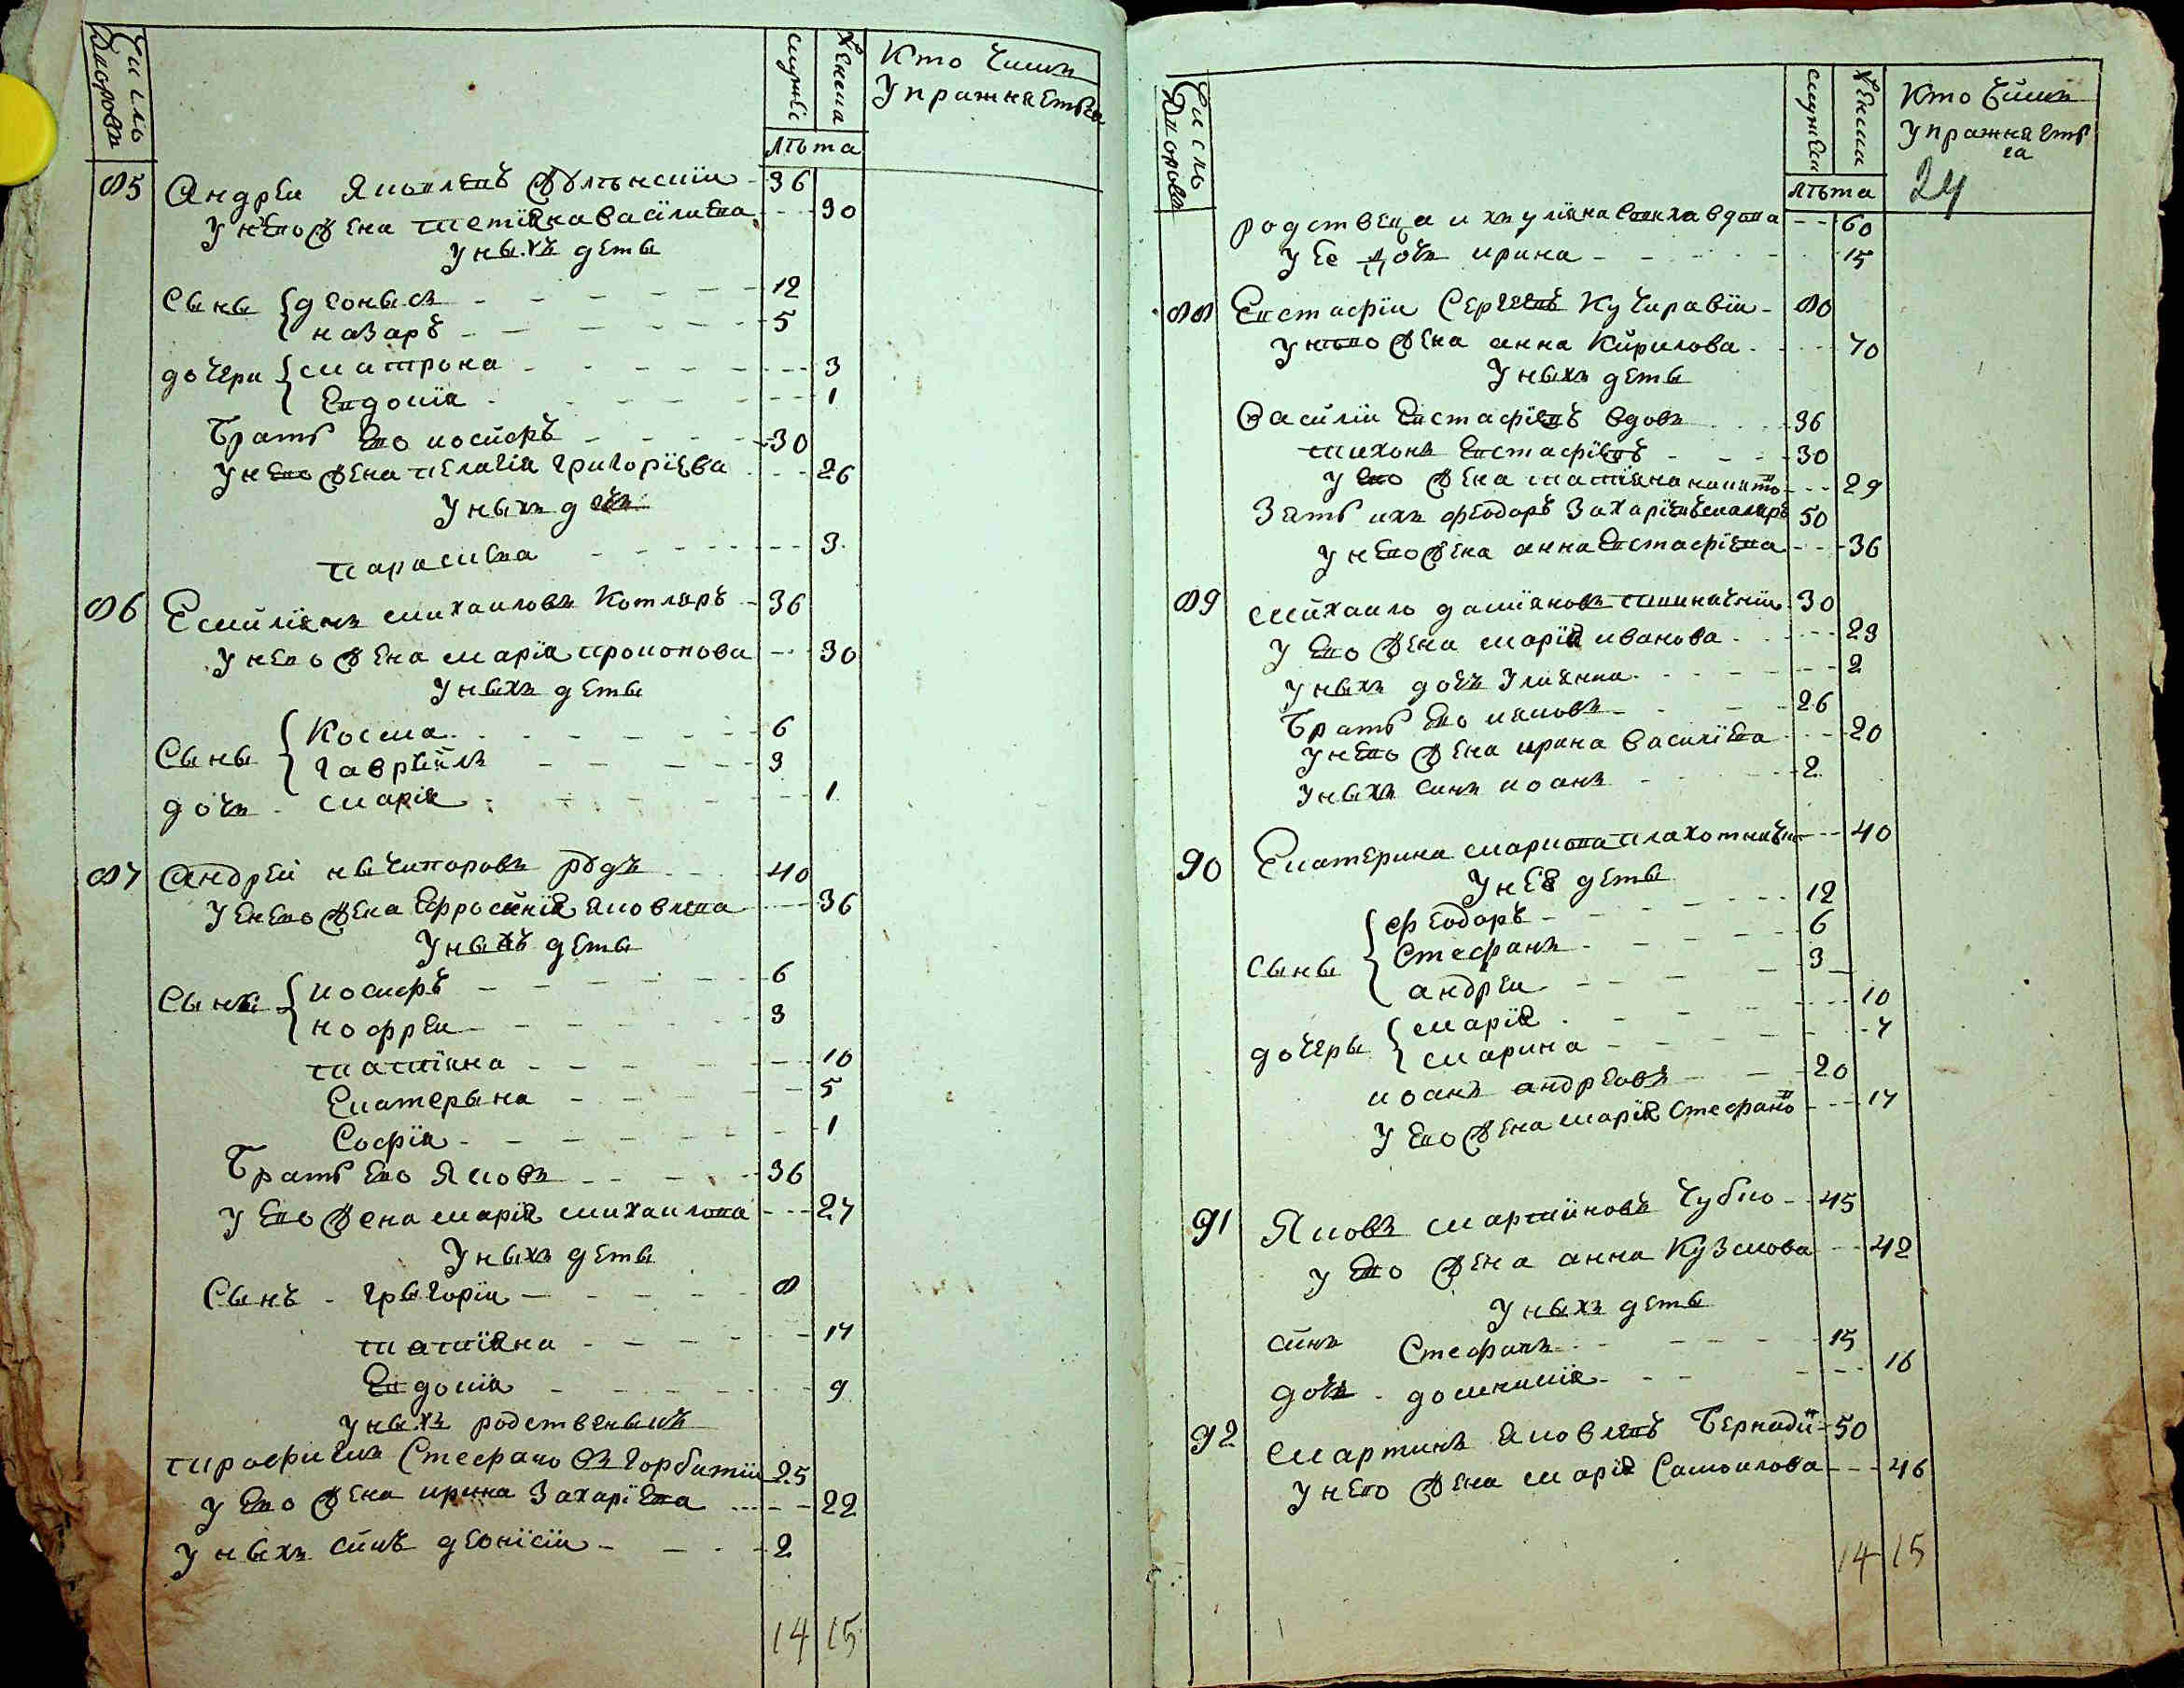 Число Дворовъ
мужес
женска
лѣта
Кто чимъ
Упражняется
85 Андреи Яковлевъ 36
У него жена Тетіяна Васілиева 30
У ныхъ деты
Сыны Деонысъ 12
Назаръ 5
дочери Матрона 3
Евдокія 1
Братъ его Иосифъ 30
У него жена Пелагія Григоріева 26
У ныхъ дочъ
Параскева 3
86 Емиліянъ Михаиловъ Котляръ 36
У него жена Марія Прокопова 30
У ныхъ деты
Сыны Косма 6
Гавріилъ 3
дочъ Марія 1
87 Андреи Нычипоровъ Рудъ 40
У него жена Ефросинія Яковлева 36
У ныхъ деты
Сыны Иосифъ 6
Нофреи 3
Татіяна 10
Екатерына 5
Софія 1
Братъ его Яковъ 36
У его жена Марія Михаилова 27
У ныхъ деты
Сынъ Грыгоріи 8
Татіяна 17
Евдокія 9
У ныхъ родственыкъ
Трофимъ Стефановъ Горбатіи 25
У его жена Ирина Захаріева 22
У ныхъ синъ Деонісіи 2
14 15
Число Дворовъ
мужеск
женска
лѣта
Кто чимъ
Упражняет
ся
24
родственица ихъ Уліяна вдова 60
У ее дочъ Ирина 15
88 Евстафіи Сергеевъ Кучиравіи 80
У него жена Анна Кирилова 70
У ныхъ деты
Василіи Евстафіевъ вдовъ 36
Тихонъ Евстафіевъ 30
У его жена Татіяна 29
Зять ихъ Феодоръ Захаріевъ 50
У него жена Анна Евстафіева 36
89 Михаило Даміяновъ 30
У его жена Марія Иванова 23
У ныхъ дочъ Улиянна 2
Братъ его Иаковъ 26
У него жена Ирина Василіева 20
У ныхъ синъ Иоанъ 2
90 Екатерина Маркова 40
У нея деты
Сыны Феодоръ 12
Стефанъ 6
Андреи 3
дочеры Марія 10
Марина 7
Иоанъ Андреовъ 20
У его жена Марія Стефано 17
91 Яковъ Мартиновъ Чубко 45
У его жена Анна Кузмова 42
У ныхъ деты
синъ Стефанъ 15
дочъ Домникія 16
92 Мартинъ Яковлевъ 50
У него жена Марія Самоилова 46
14 15